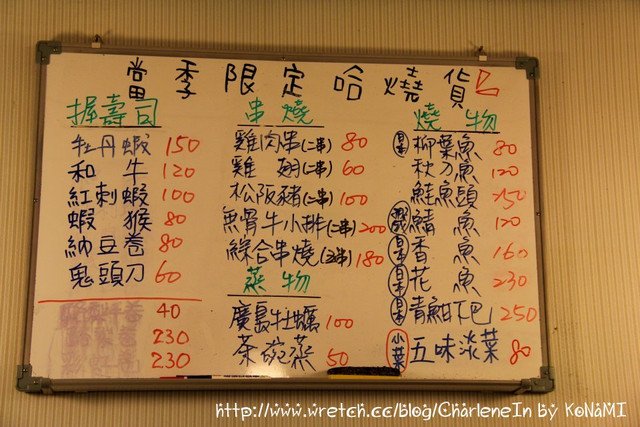 當季限定哈燒貨
握壽司
牡丹蝦 150
和牛 120
紅刺蝦 100
蝦猴 80
納豆卷 80
鬼頭刀 60
40
230
230
串燒
雞肉串(二串) 80
雞翅(二串) 60
松阪豬(二串) 100
無骨牛小排(二串) 200
綜合串燒(五串) 180
蒸物
廣島牡蠣 100
茶碗蒸 50
燒物
日本 柳葉魚 80
秋刀魚 120
鮭魚頭 150
鯖魚 120
日本 香魚 160
日本 花魚 230
日本 青魽下巴 250
小菜 五味淡菜 80
http://www.wretch.cc/blog/CharleneIn by KoNaMI